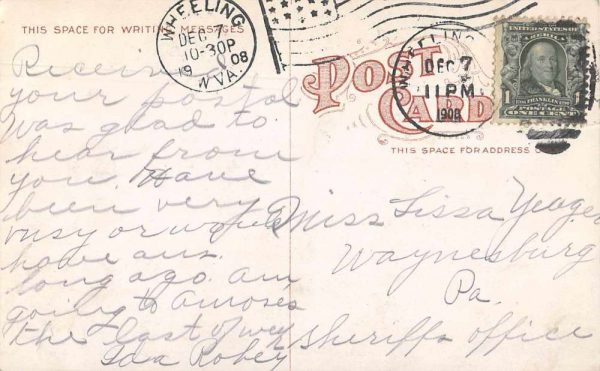 THIS SPACE FOR WRITING MESSAGES
WHEELING
DEC 7
10-30P
19 08
W.VA.
POST CARD
WHEELING
DEC 7
11 PM
1908
UNITED STATES OF AMERICA
1 FRANKLIN
POSTAGE
ONE CENT
THIS SPACE FOR ADDRESS
Received
your postal
was glad to
hear from
you. Have
been very
busy or would
have ans.
long ago. am
going to
the last of week
Ida Robey
Miss Lissa Yeager
Waynesburg
Pa.
Sheriffs office